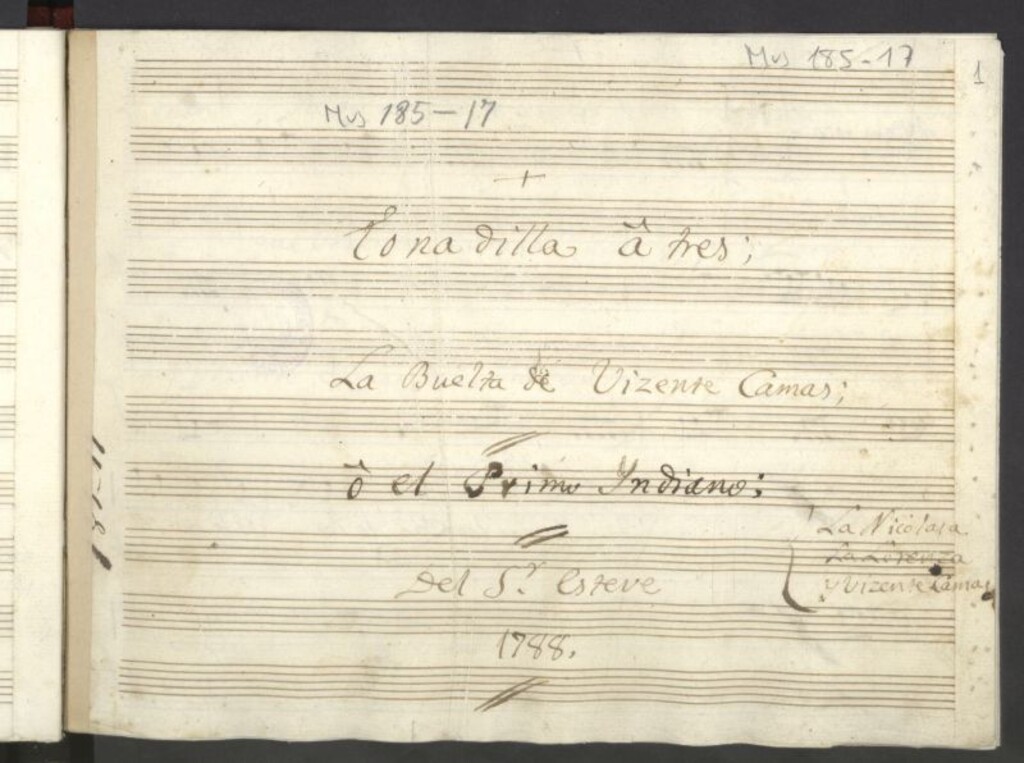 Mus 185-17
1
Mus 185-17
+
Tonadilla â tres;
La Buelta de Vizente Camas;
ô el Primo Yndiano;
La Nicolasa
La Lorenza
y Vizente Camas
Del S.r Esteve
1788.